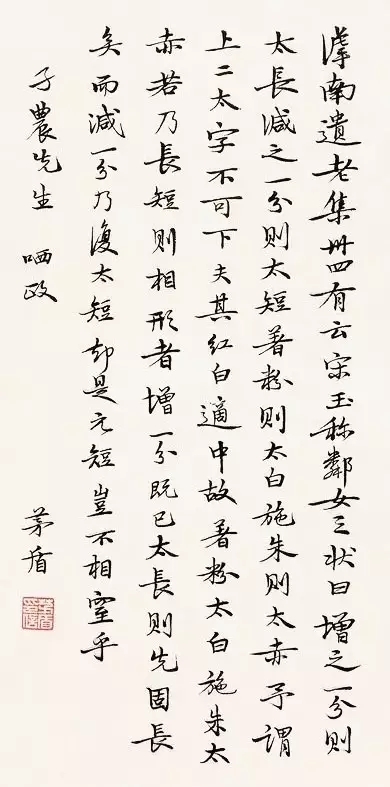 滹南遺老集卅四有云宋玉称鄰女之状曰增之一分則
太長減之一分則太短著粉則太白施朱則太赤予謂
上二太字不可下夫其紅白適中故著粉太白施朱太
赤若乃長短則相形者增一分既已太長則先固長
矣而減一分乃復太短却是元短豈不相窒乎
子農先生 哂政
茅盾